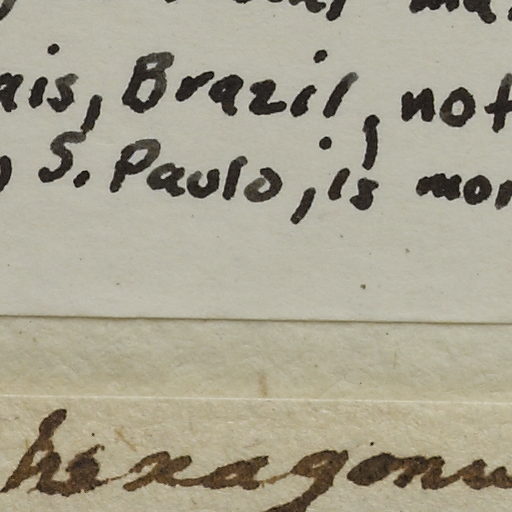 ais, Brazil, not
S. Paulo, is mor
hexagonu